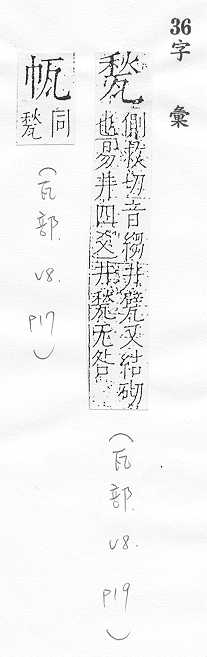 36字 彙
甃
側救切音縐井甓又結砌
也易井四爻井甃无咎
(瓦部. V8. P19)
同
甃
(瓦部. V8. P17)